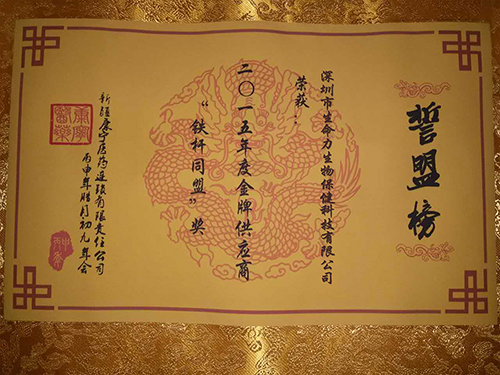 誓盟榜
深圳市生命力生物保健科技有限公司
荣获：
二〇一五年度金牌供应商
“铁杆同盟”奖
新疆康宁医药连锁有限责任公司
丙申年腊月初九年会